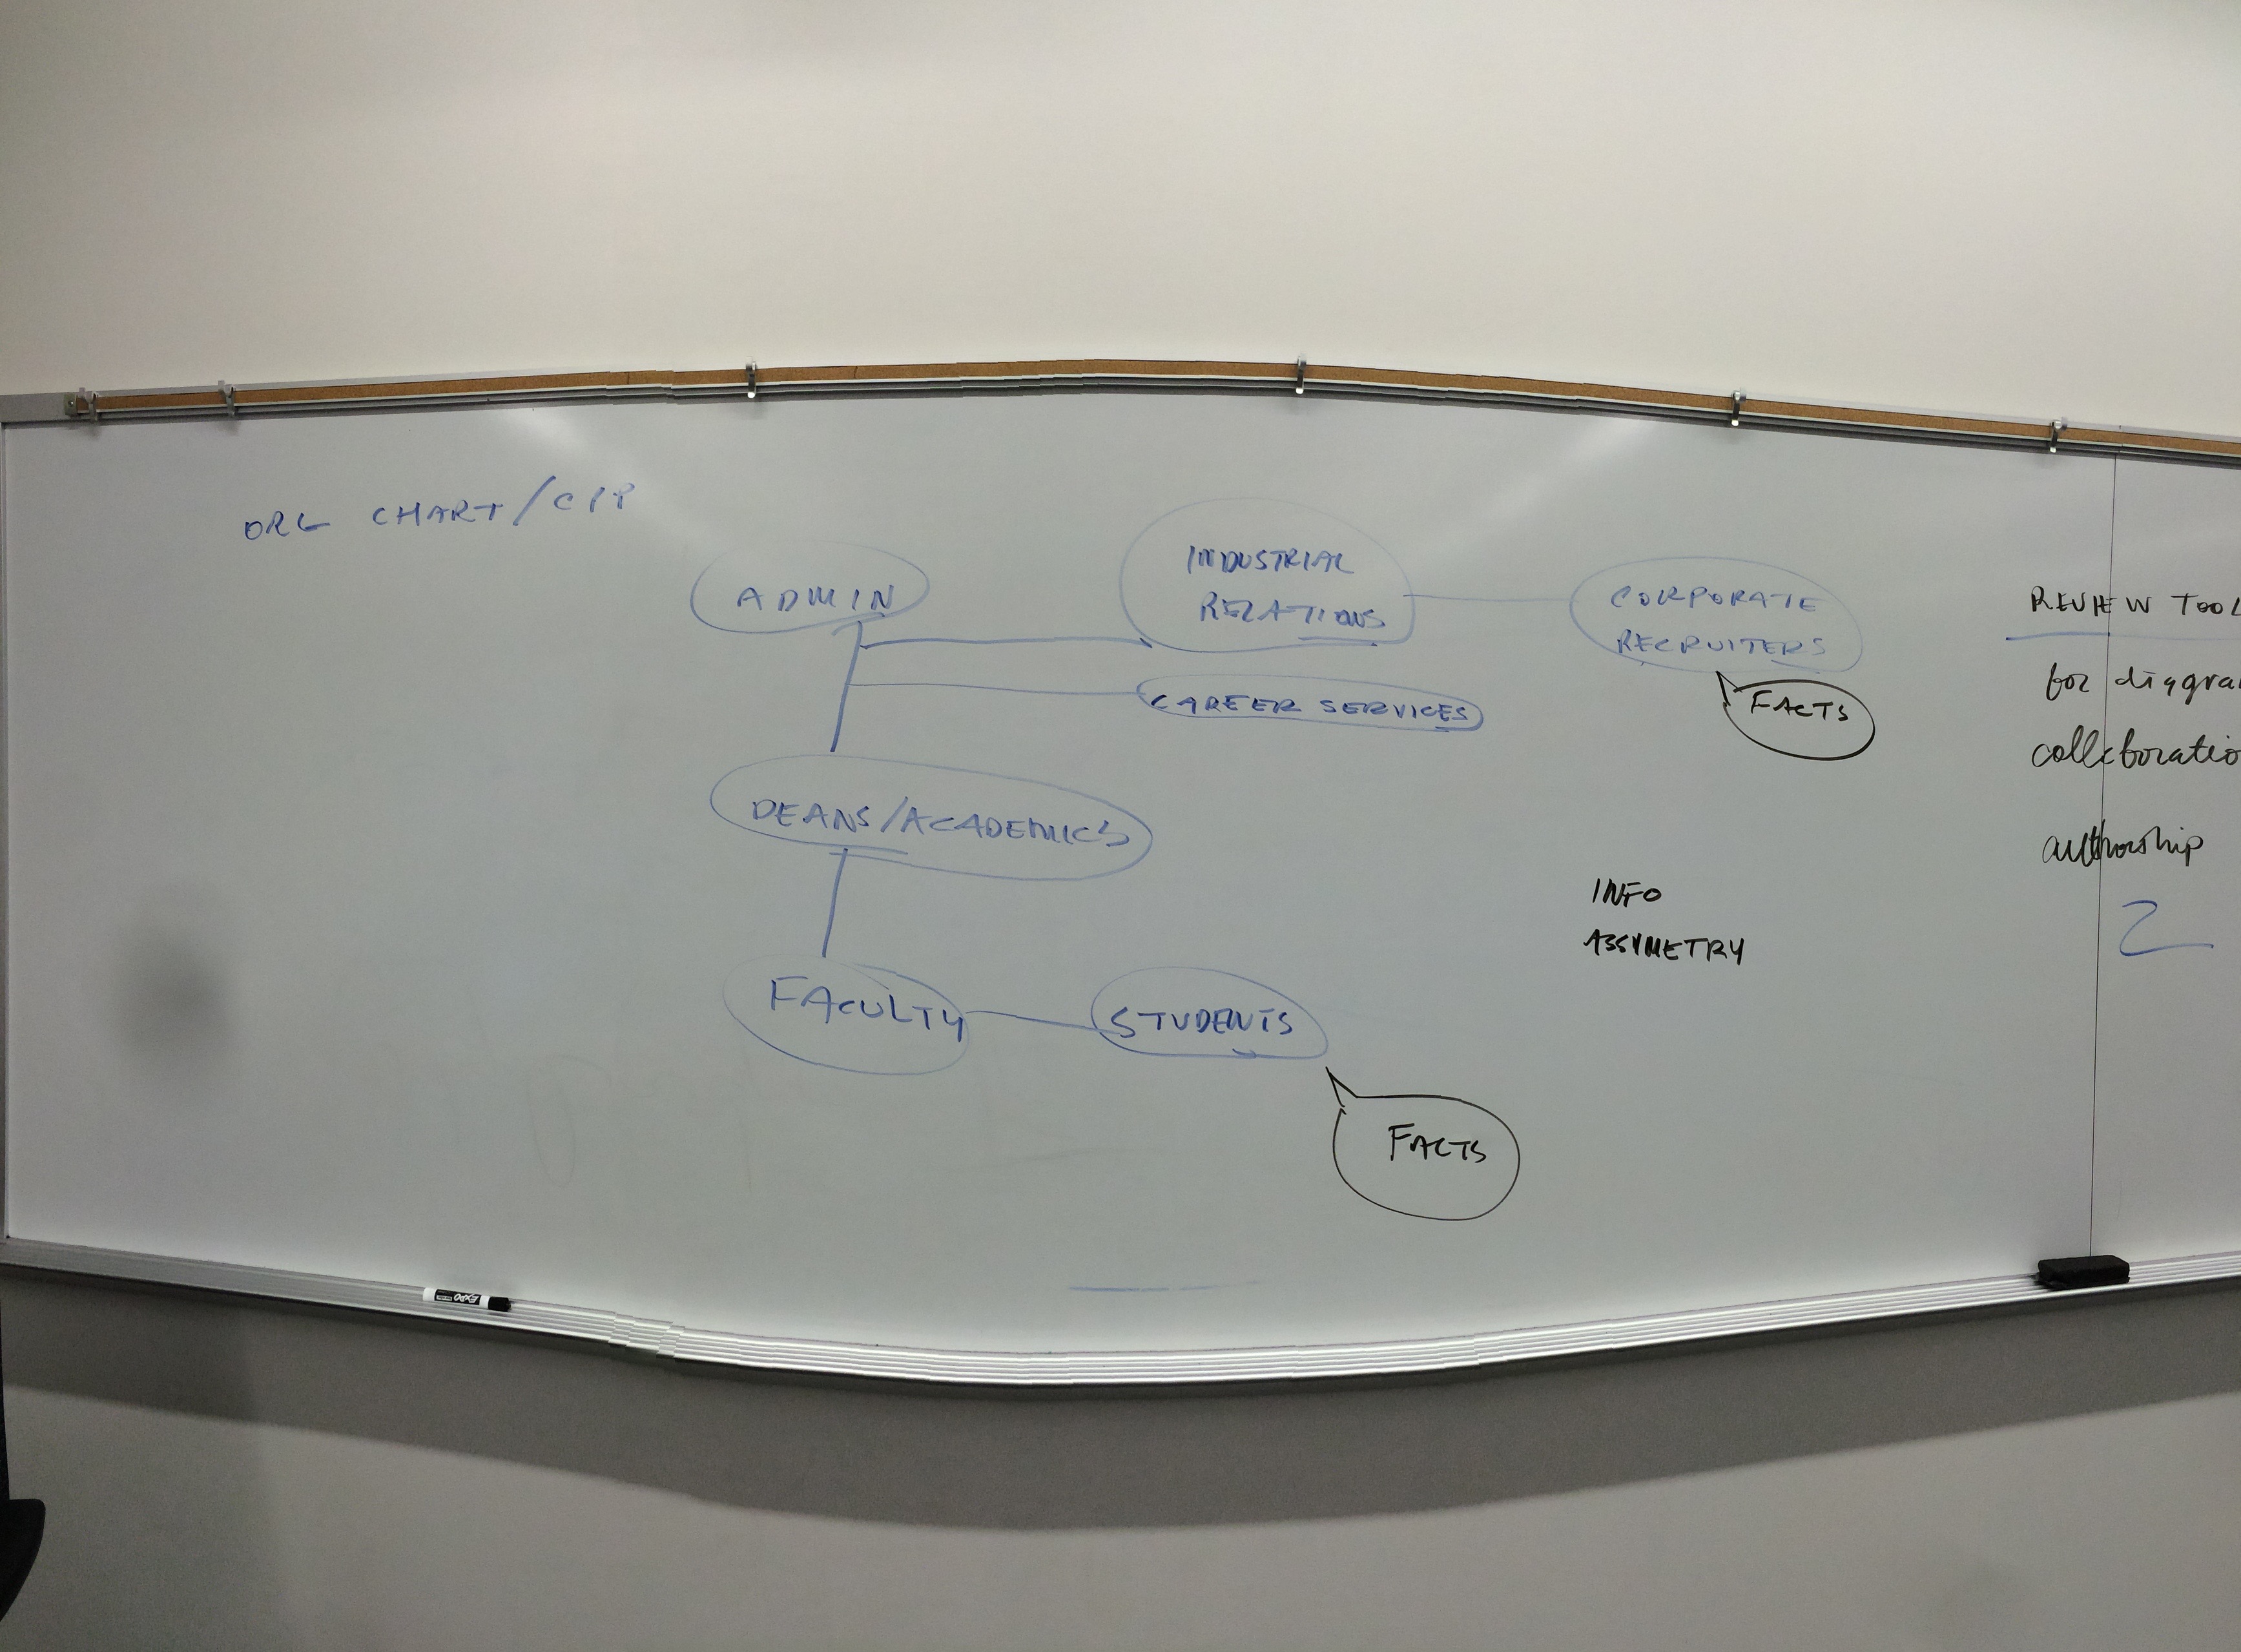 ORG CHART/CPP
ADMIN
INDUSTRIAL
RELATIONS
CORPORATE
RECRUITERS
FACTS
CAREER SERVICES
DEANS/ACADEMICS
FACULTY
STUDENTS
FACTS
INFO
ASSYMETRY
REVIEW TOOL
for diagra
collaboratio
authorship
2
EXPO